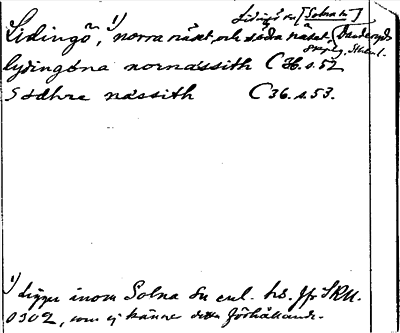 Lidingö sn [Solna sn]
Lidingö, 1) norra näset och södra näset, Danderyds
skplg. Sthlm l.
lydingöna nornässith C 36. s. 52
Södhre nässith C 36. s. 53.
1) Ligger inom Solna sn enl. hs. Jfr SRU.
0302, som ej känner detta förhållande.